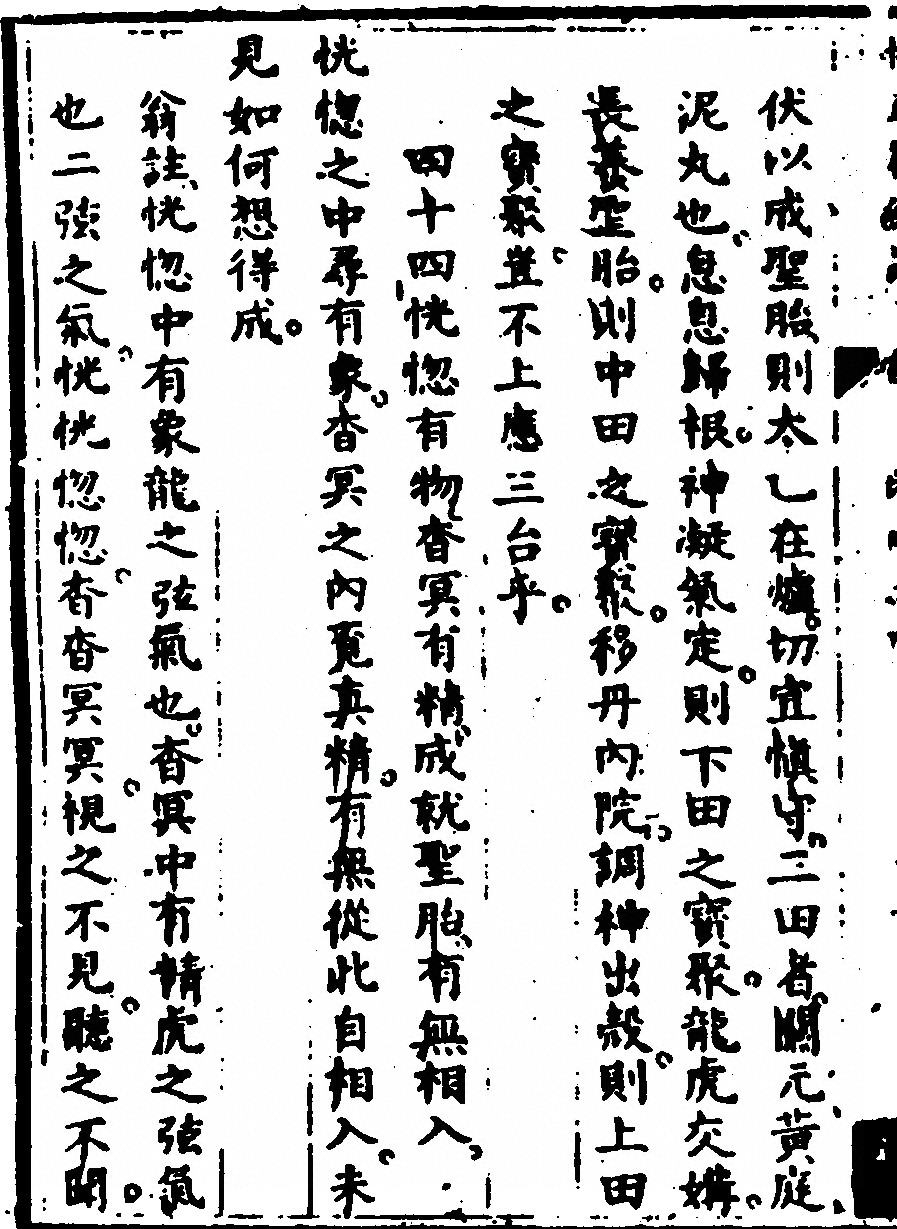 伏以成聖胎則太乙在爐切宜慎守三田者關元黃庭
泥丸也息息歸根神凝氣定則下田之寶聚龍虎交媾
長養聖胎則中田之寶聚移丹內院調神出殼則上田
之寶聚豈不上應三台乎
四十四恍惚有物杳冥有精成就聖胎有無相入
恍惚之中尋有象杳冥之內覓真精有無從此自相入未
見如何想得成
翁註恍惚中有象龍之弦氣也杳冥中有精虎之弦氣
也二弦之氣恍恍惚惚杳杳冥冥視之不見聽之不聞